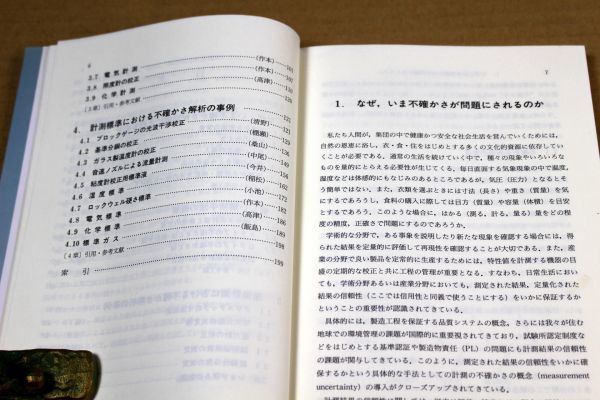 6
3.7 電気計測 (作本) 101
3.8 照度計の校正 (作本)
3.9 化学計測 (高津)
[3章] 引用・参考文献 120
4. 計測標準における不確かさ解析の事例 121
4.1 ブロックゲージの光波干渉校正 (清野) 121
4.2 基準分銅の校正 (楓瀬)
4.3 ガラス製温度計の校正 (桑山)
4.4 音速ノズルによる流量計測 (中尾)
4.5 粘度計校正用標準液 (今井) 149
4.6 湿度標準 (稲松) 162
4.7 ロックウェル硬さ標準 (小池) 172
4.8 電気標準 (作本) 182
4.9 化学標準 (高津) 186
4.10 標準ガス (飯島) 189
[4章] 引用・参考文献 198
索引 199
7
1. なぜ，いま不確かさが問題にされるのか
私たち人間が，集団の中で健康かつ安全な社会生活を営んでいくためには，
自然の恩恵に浴し，衣・食・住をはじめとする多くの文化的資産に依存してい
くことが必要である．通常の生活を続けていく中で，種々の現象やいろいろな
ものを量的にとらえる必要性が生じてくる．毎日直面する気象現象の中で温度，
湿度などは体感的にもなじみのあるところであるが，気圧（圧力）となるとそ
う簡単ではない．また，衣類を選ぶときには寸法（長さ）や重さ（質量）を気
にするであろうし，食料の購入に際しては目方（質量）や容量（体積）を目安
とするであろう．このような場合に，はかる（測る，計る，量る）量をどの程
度の精度，正確さで問題にするのであろうか．
学術的な分野で，ある事象を説明したり新たな現象を確認する場合には，得
られた結果を定量的に評価して再現性を確認することが大切である．また，産
業の分野で良い製品を定常的に生産するためには，特性値を計測する機器の目
盛の定期的な校正と共に工程の管理が重要となる．すなわち，日常生活におい
ても，学術分野あるいは産業分野においても，測定された結果，定量化された
結果の信頼性（ここでは信用性と同義で使うことにする）をいかに保証するか
ということの重要性が認識されてきている．
具体的には，製造工程を保証する品質システムの概念，さらには我々が住む
地球での環境管理の課題が国際的に重要視されてきており，試験所認定制度な
どをはじめとする基準認証や製造物責任（PL）の問題にも計測結果の信頼性
の課題が関与してきている．このように，測定された結果の信頼性をいかに確
保するかという具体的な手法としての計測の不確かさの概念（measurement
uncertainty）の導入がクローズアップされてきている．